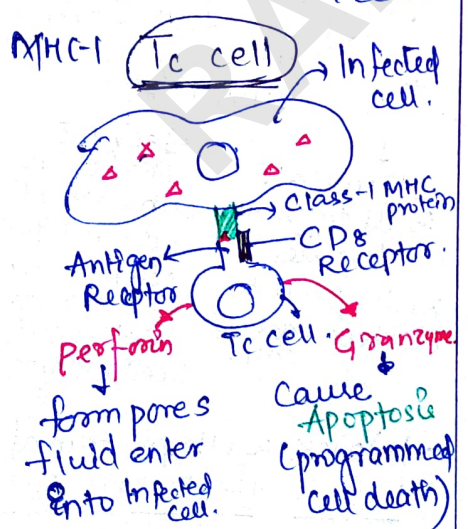 MHC-1
Tc cell
Infected
cell.
Class-1 MHC
protein
CD8
Receptor.
Antigen
Reaptor
Tc cell.
Perforin
Granzyme
form pores
fluid enter
into Infected
cell.
Cause
Apoptosis
(programmed
cell death)